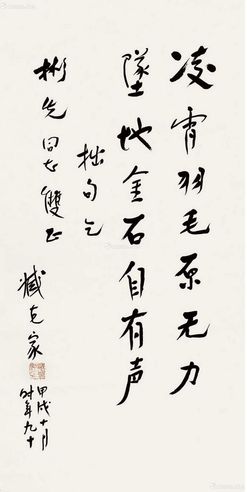 凌霄羽毛原无力
墜地金石自有声
拙句乞
彬先同志雙正
臧克家
甲戌十月
时年九十